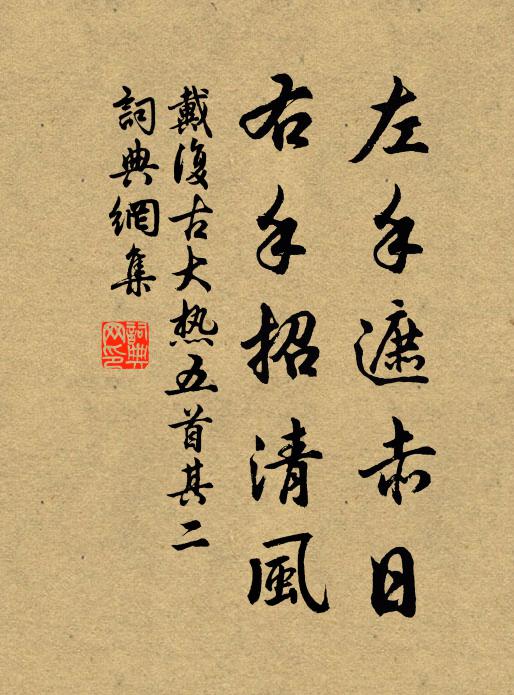 左手遮赤日
右手招清風
戴復古大热五首其二
詞典網集
詞典网印